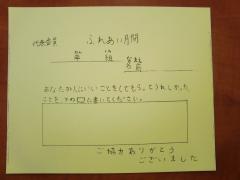 代表委員 ふれあい月間
年 組 名前
あなたが人にいいことをしてもらってうれしかった
ことを下の□に書いてください。
ご協力ありがとう
ございました